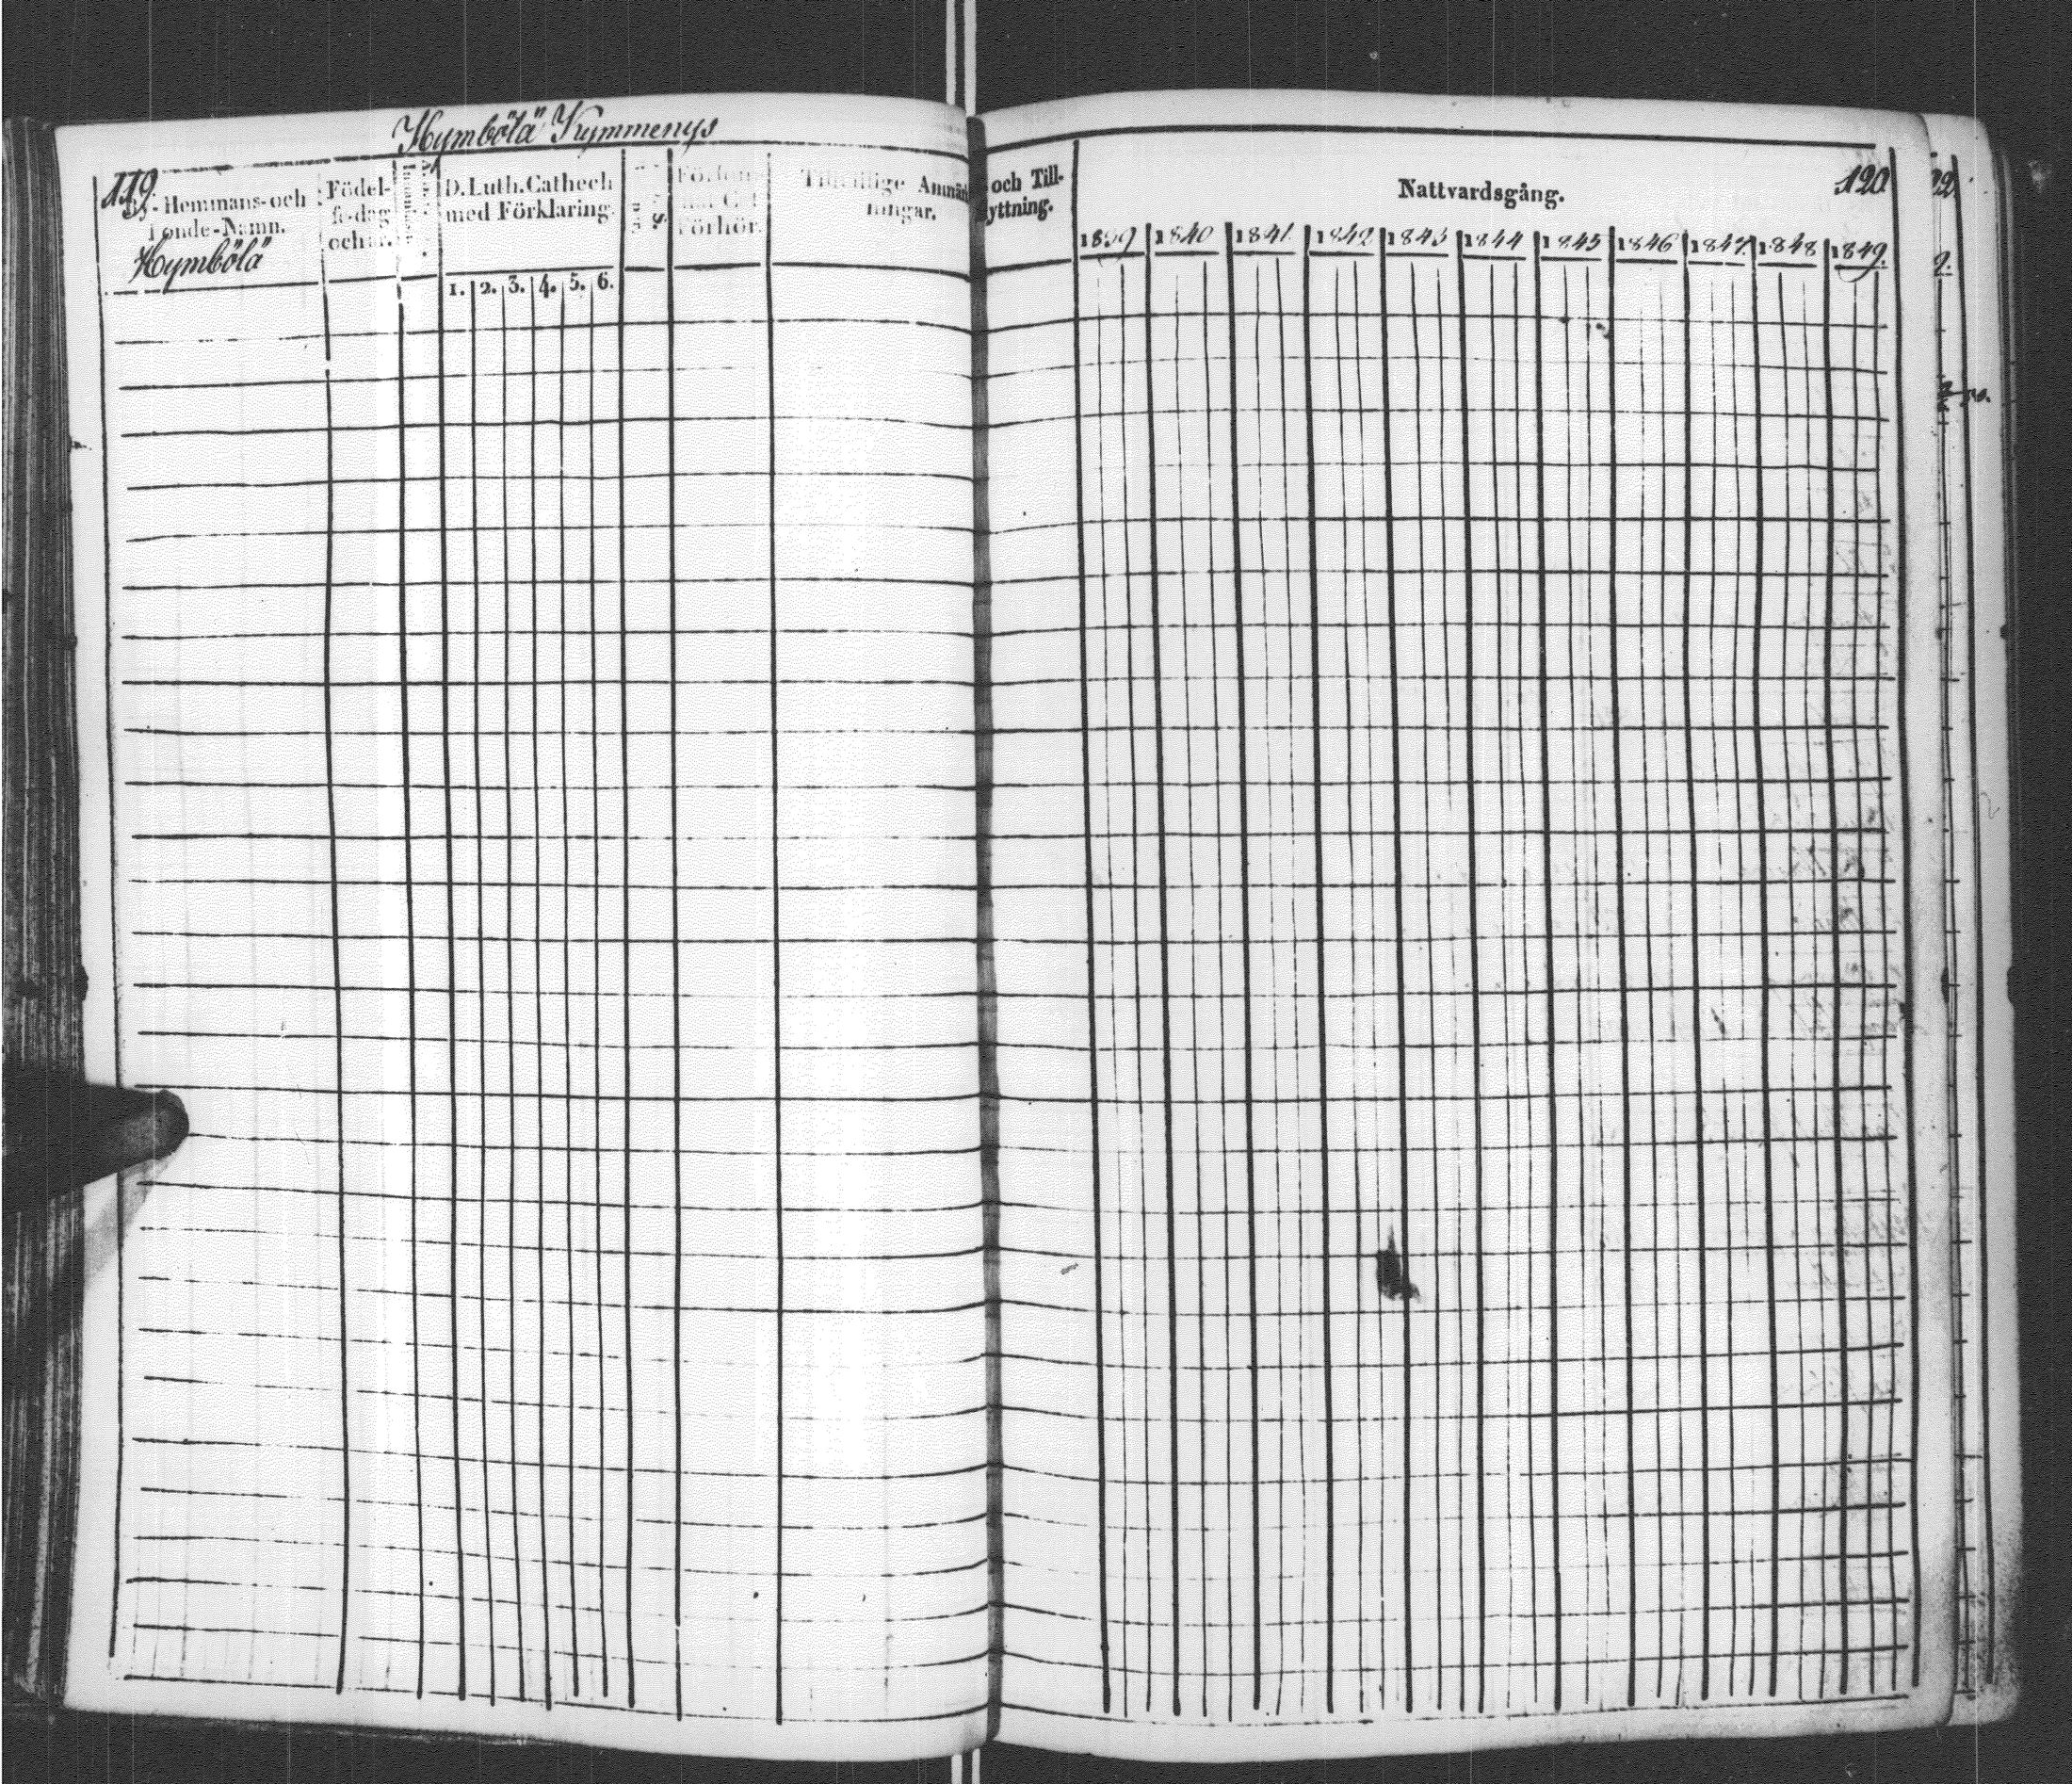 Hymbölä Kymmenys
119.
By- Hemmans-och
Bonde-Namn.
Hymbölä
Födel-
sedag
och år.
D. Luth. Cathech
med Förklaring.
1. 2. 3. 4. 5. 6.
Förhör.
Tillfällige Anmärk
ningar.
och Till-
yttning.
Nattvardsgång.
120
1839 1840 1841 1842 1843 1844 1845 1846 1847. 1848 1849.